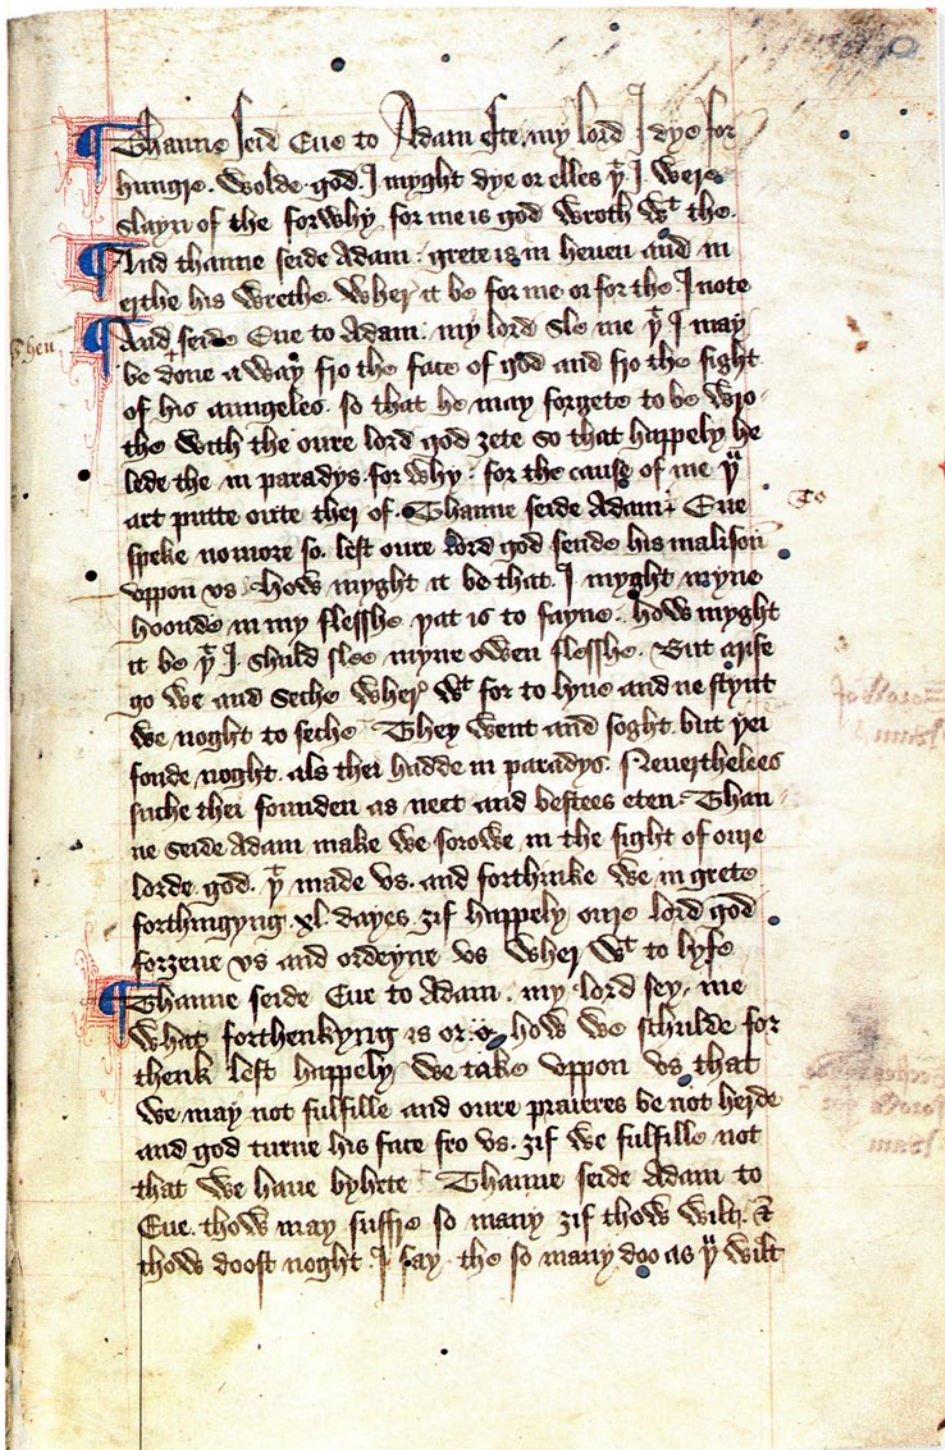 ¶ Thanne seid Eue to Adam efte. my lord I dye for
hungre. wolde god. I myght dye or elles þᵗ I were
slayn of the forwhy for me is god wroth wᵗ the.
¶ And thanne seide Adam : grete is in heuen and in
erthe his wrethe. wher it be for me or for the I note
¶ And seide Eue to Adam : my lord sle me þᵗ I may
be done a way fro the face of god and fro the sight
of his aungeles. so that he may forgete to be wro-
the with the oure lord god ȝete so that happely he
lede the in paradys. for why : for the cause of me þᵘ
art putte oute ther of. Thanne seide Adam Eue
speke nomore so. lest oure lord god sende his malisoun
vppon vs. How myght it be that. I myght myne
hoonde in my flesshe þat is to sayne. how myght
it be þᵗ I. shuld slee myne owen flesshe. But arise
go we and seche wher wᵗ for to lyue and ne stynt
we noght to seche They went and soght. but þei
fonde noght. als thei hadde in paradys. Neuerthelees
suche thei founden as neet and bestees eten. Than-
ne seide Adam make we sorowe in the sight of oure
lorde god. þᵗ made vs. and forthinke we in grete
forthingyng .xl. dayes. ȝif happely oure lord god
forȝeue vs and ordeyne vs wher wᵗ to lyfe
¶ Thanne seide Eue to Adam. my lord sey me
what forthenkyng is or how we schulde for
thenk lest happely we take vppon vs that
we may not fulfille and oure praieres be not herde
and god turne his face fro vs. ȝif we fulfille not
that we haue byhete Thanne seide Adam to
Eue. thow may suffre so many ȝif thow wilt. &
thow doost noght. I say the so many doo as þᵘ wilt